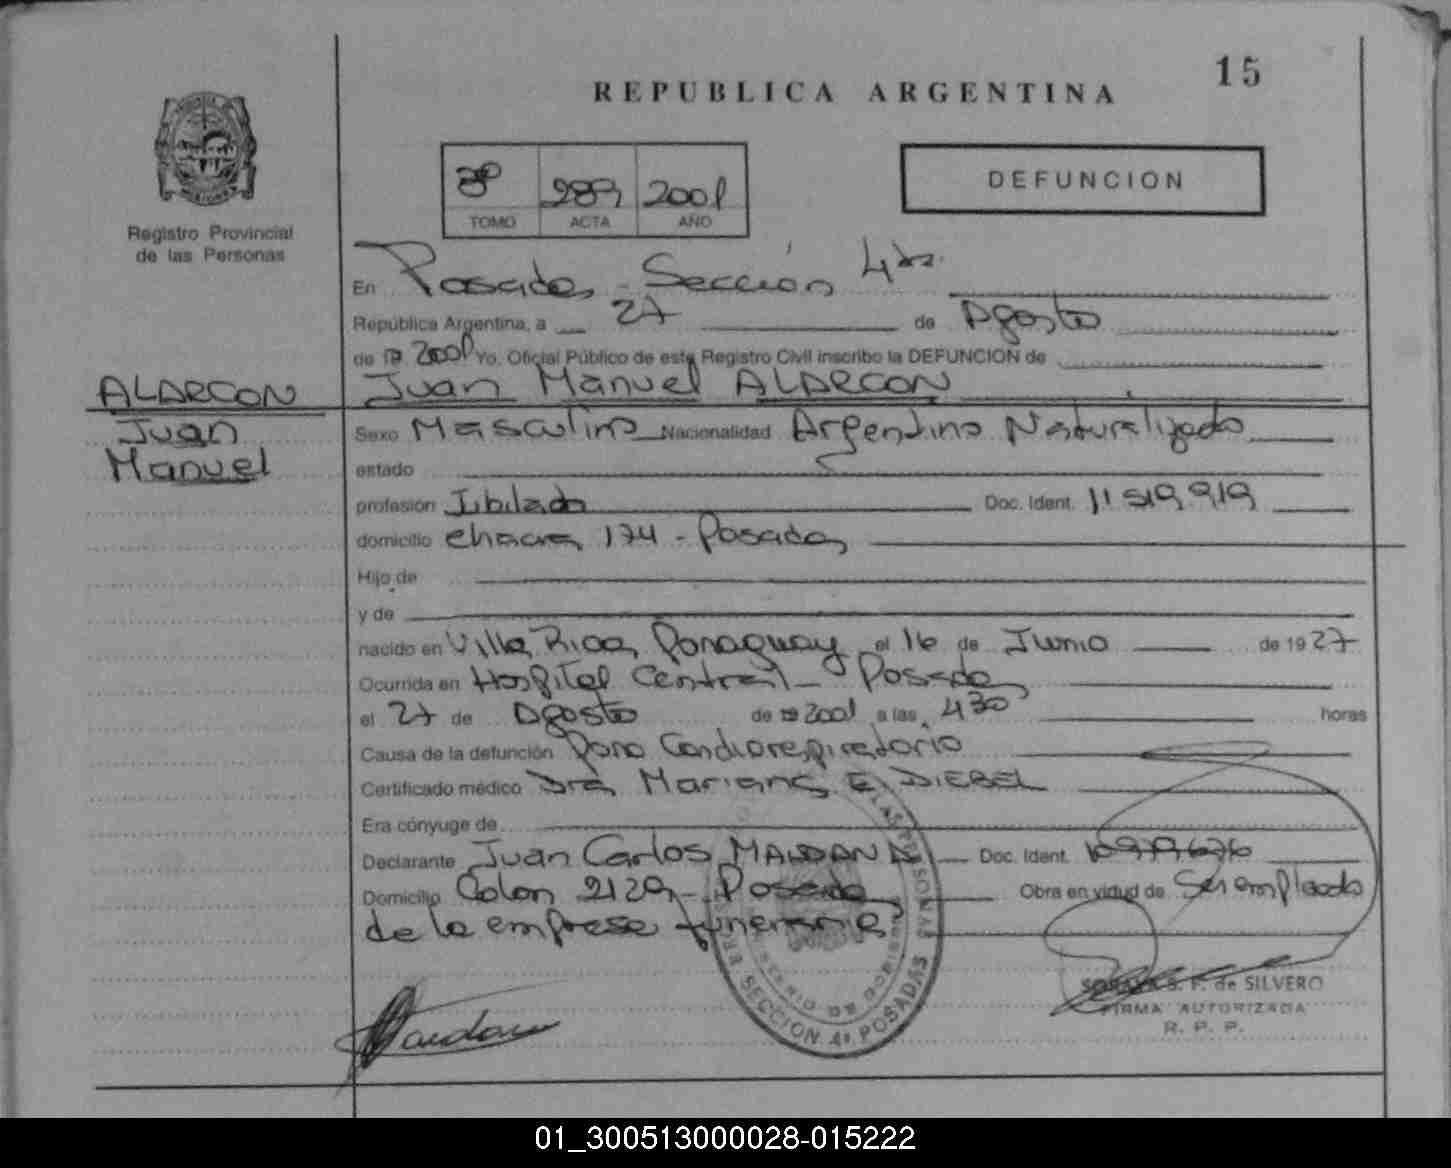 15
REPUBLICA ARGENTINA
DEFUNCION
3º 289 2001
TOMO ACTA AÑO
Registro Provincial
de las Personas
En Posadas - Sección 4ta.
República Argentina, a 27 de Agosto
de 19 2001 Yo. Oficial Público de este Registro Civil inscribo la DEFUNCION de
ALARCON Juan Manuel ALARCON
Juan Sexo Masculino Nacionalidad Argentino Naturalizado
Manuel estado
profesión Jubilado Doc. Ident. 11 519 919
domicilio chacra 174 - Posadas
Hijo de
y de
nacido en Villa Rica, Paraguay el 16 de Junio de 1927
Ocurrida en Hospital Central - Posadas
el 27 de Agosto de 19 2001 a las 430 horas
Causa de la defunción Paro Cardiorespiratorio
Certificado médico Dra Mariana E. DIEBEL
Era cónyuge de
Declarante Juan Carlos MALDANA Doc. Ident.
Domicilio Colon 2129 - Posadas Obra en virtud de Ser empleado
de la empresa funeraria
SECCION 4ª POSADAS
S. F. de SILVERO
FIRMA AUTORIZADA
R. P. P.
01_300513000028-015222